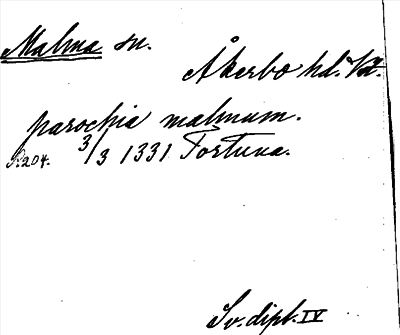 Malma sn.
Åkerbo hd. Vstm.
parochia malmum.
S. 204. 3/3 1331 Tortuna.
Sv. dipl. IV